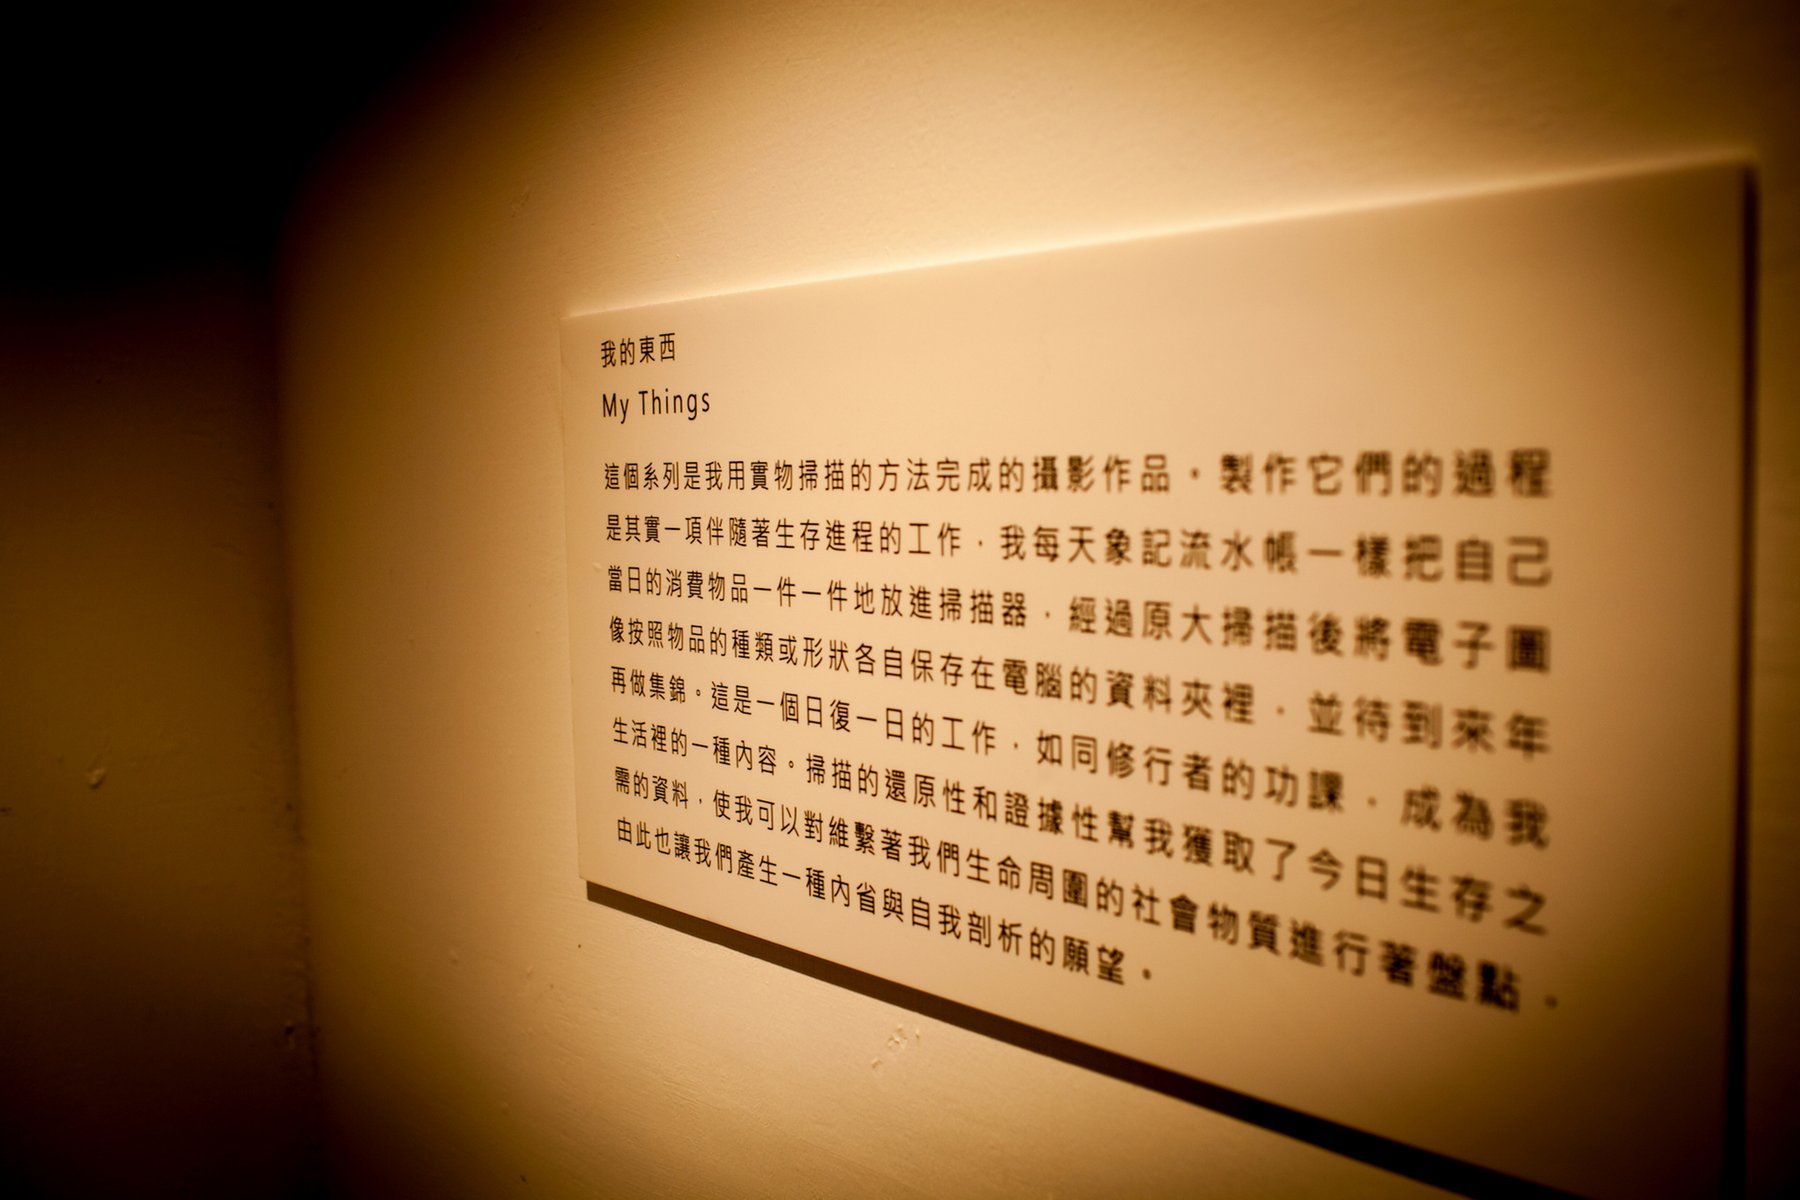 我的東西
My Things
這個系列是我用實物掃描的方法完成的攝影作品。製作它們的過程
是其實一項伴隨著生存進程的工作，我每天象記流水帳一樣把自己
當日的消費物品一件一件地放進掃描器，經過原大掃描後將電子圖
像按照物品的種類或形狀各自保存在電腦的資料夾裡，並待到來年
再做集錦。這是一個日復一日的工作，如同修行者的功課，成為我
生活裡的一種內容。掃描的還原性和證據性幫我獲取了今日生存之
需的資料，使我可以對維繫著我們生命周圍的社會物質進行著盤點，
由此也讓我們產生一種內省與自我剖析的願望。